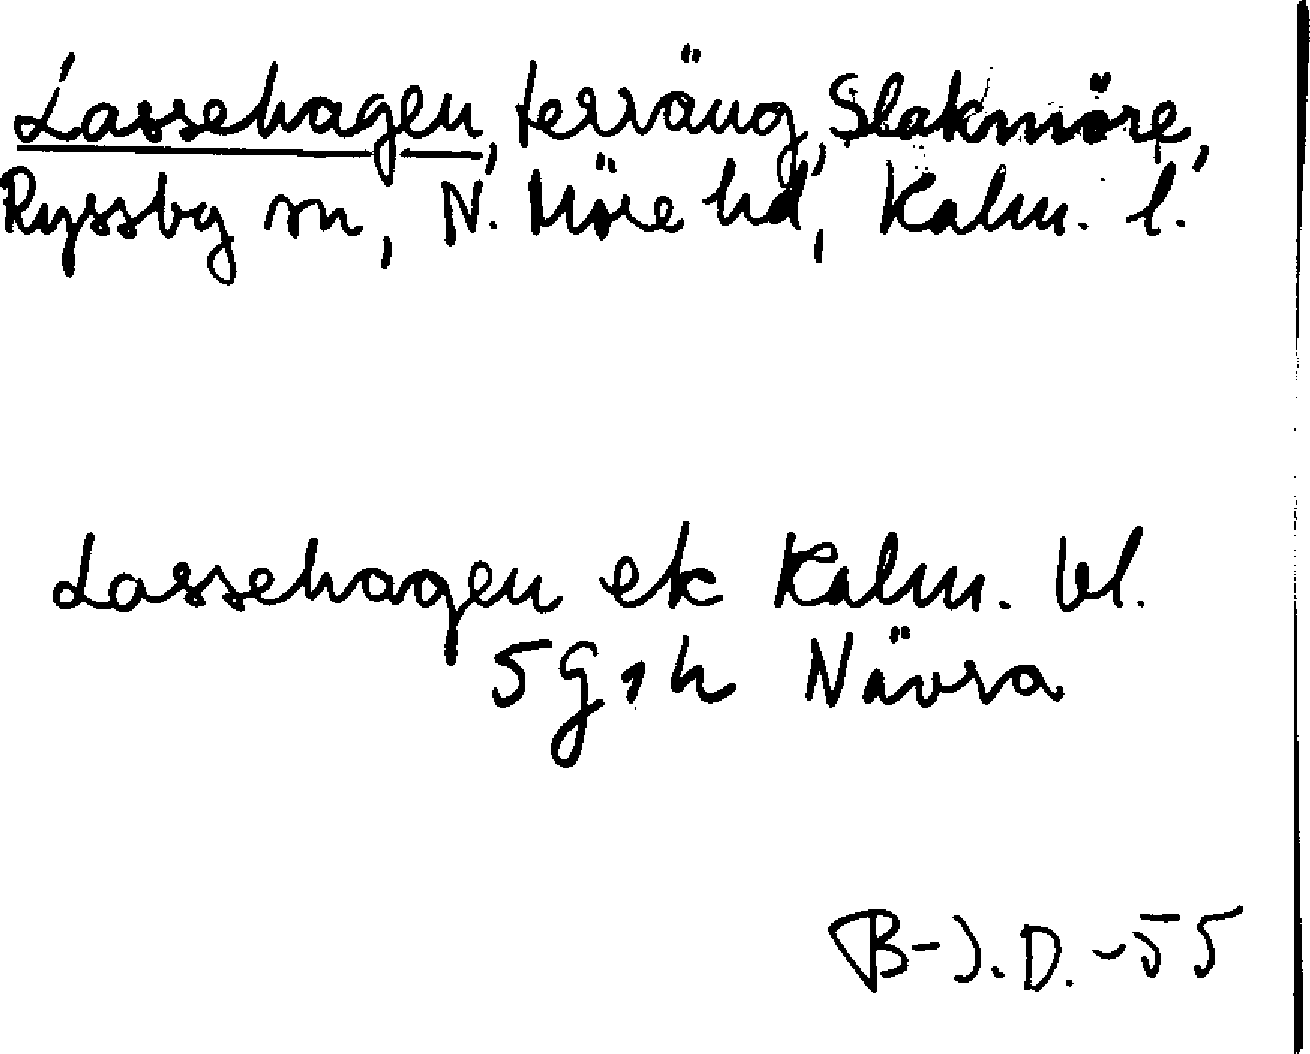 Lassehagen, terräng, Slakmöre,
Ryssby sn, N. Möre hd, Kalm. l.
Lassehagen ek Kalm. bl.
5 G 1 h Nävra
B-J. D. -55